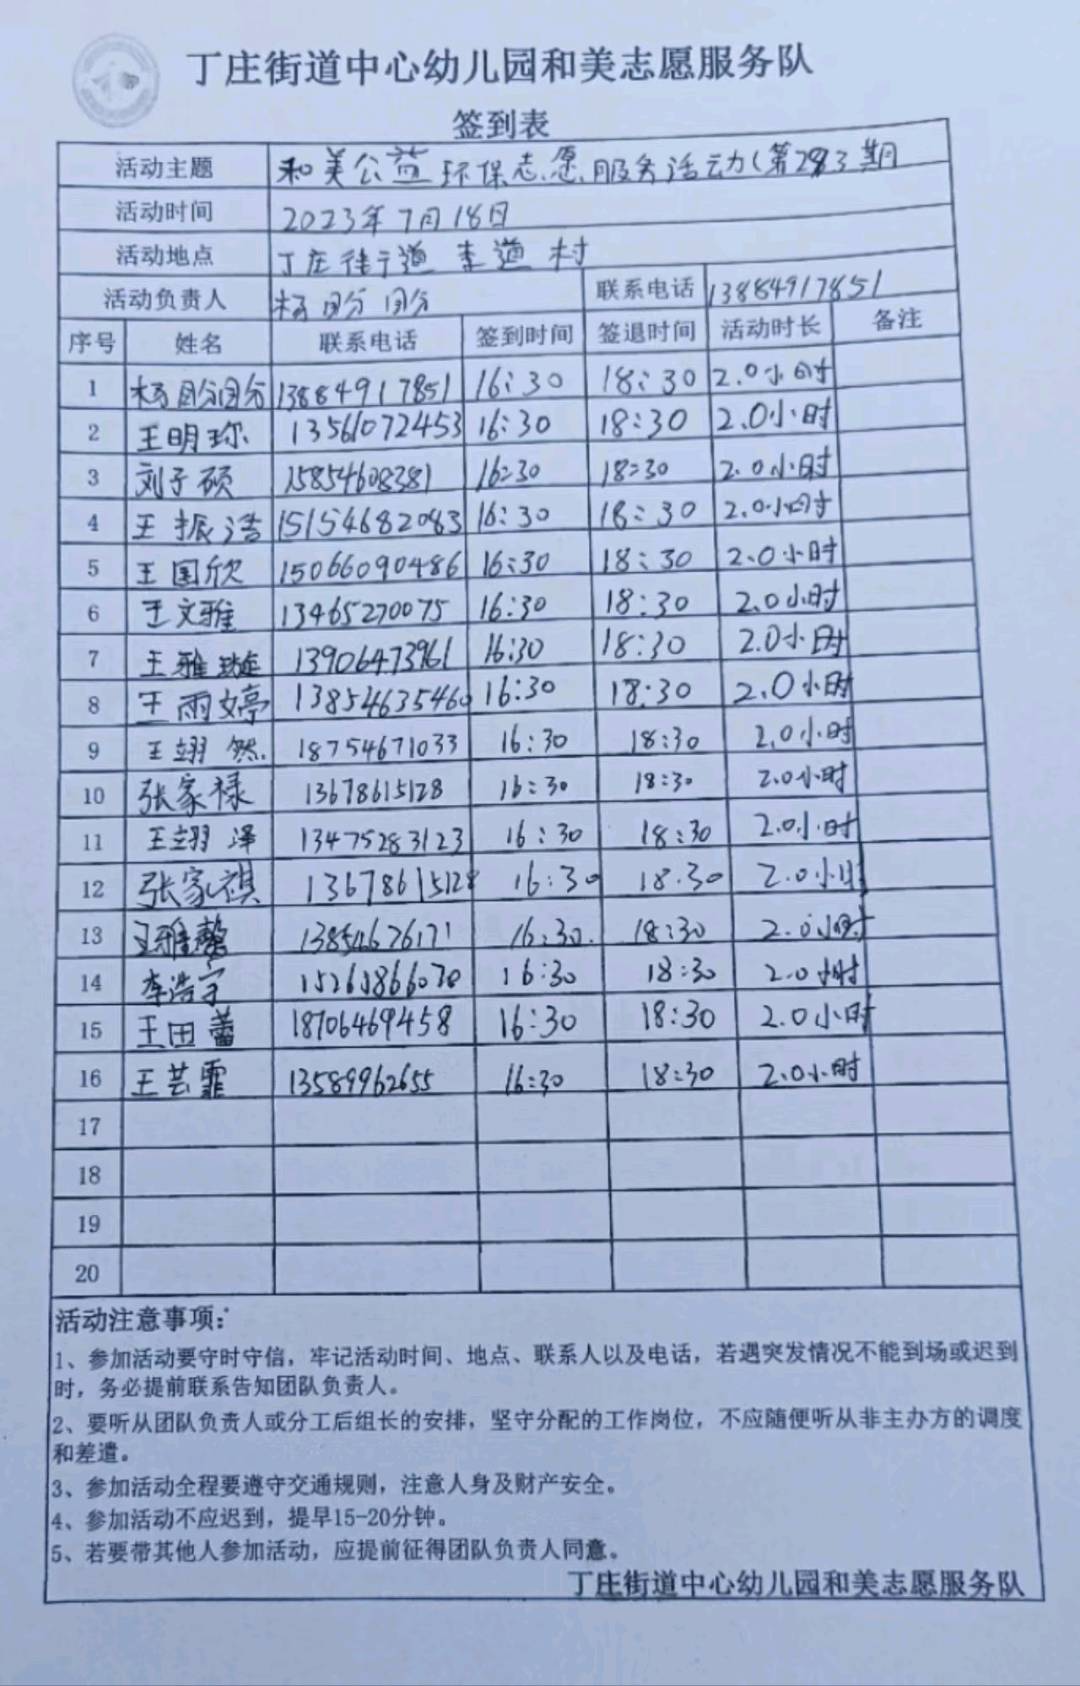 丁庄街道中心幼儿园和美志愿服务队
签到表
活动主题 和美公益环保志愿服务活动(第283期
活动时间 2023年7月18日
活动地点 丁庄街道李道村
活动负责人 杨盼盼 联系电话 13884917851
序号 姓名 联系电话 签到时间 签退时间 活动时长 备注
1 杨盼盼 13884917851 16:30 18:30 2.0小时
2 王明珎 13561072453 16:30 18:30 2.0小时
3 刘子硕 15854608381 16:30 18:30 2.0小时
4 王振浩 15154682083 16:30 18:30 2.0小时
5 王国欣 15066090486 16:30 18:30 2.0小时
6 王文雅 13465270075 16:30 18:30 2.0小时
7 王雅璇 13906473961 16:30 18:30 2.0小时
8 王雨婷 13854635460 16:30 18:30 2.0小时
9 王翊然 18754671033 16:30 18:30 2.0小时
10 张家禄 13678615128 16:30 18:30 2.0小时
11 王翊泽 13475283123 16:30 18:30 2.0小时
12 张家祺 13678615128 16:30 18:30 2.0小时
13 王雅馨 13854676171 16:30 18:30 2.0小时
14 李浩宇 16:30 18:30 2.0小时
15 王田蕾 18706469458 16:30 18:30 2.0小时
16 王芸霏 13589962655 16:30 18:30 2.0小时
17
18
19
20
活动注意事项:
1、参加活动要守时守信，牢记活动时间、地点、联系人以及电话，若遇突发情况不能到场或迟到
时，务必提前联系告知团队负责人。
2、要听从团队负责人或分工后组长的安排，坚守分配的工作岗位，不应随便听从非主办方的调度
和差遣。
3、参加活动全程要遵守交通规则，注意人身及财产安全。
4、参加活动不应迟到，提早15-20分钟。
5、若要带其他人参加活动，应提前征得团队负责人同意。
丁庄街道中心幼儿园和美志愿服务队